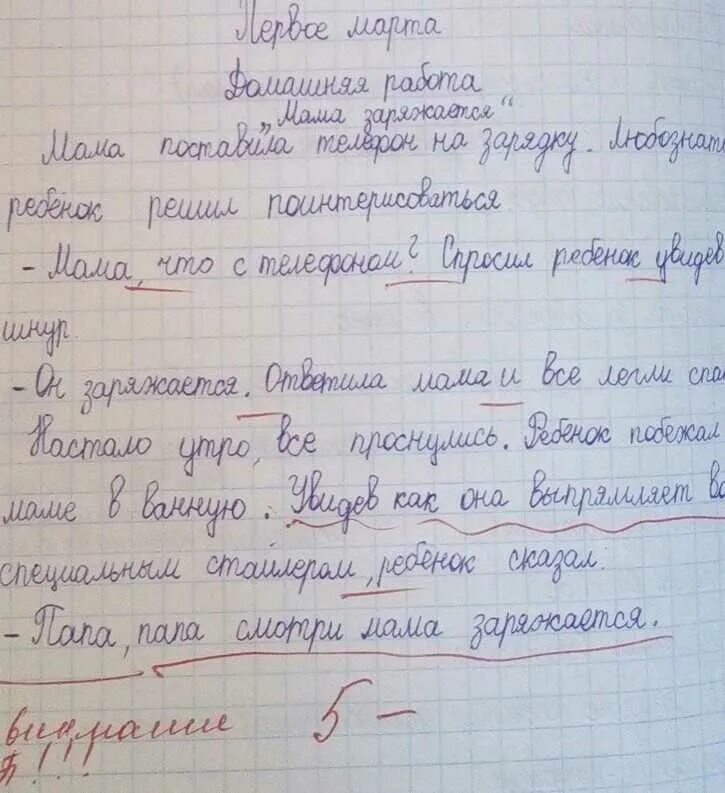 Первое марта
Домашняя работа
„Мама заряжается“
Мама поставила телефон на зарядку. Любознат
ребёнок решил поинтерисоваться
- Мама, что с телефоном? Спросил ребёнок увидев
шнур.
- Он заряжается. Ответила мама и все легли спа
Настало утро, все проснулись. Ребёнок побежал
маме в ванную. Увидев как она выпрямляет во
специальным стайлером, ребёнок сказал:
- Папа, папа смотри мама заряжается.
5 -
!!!